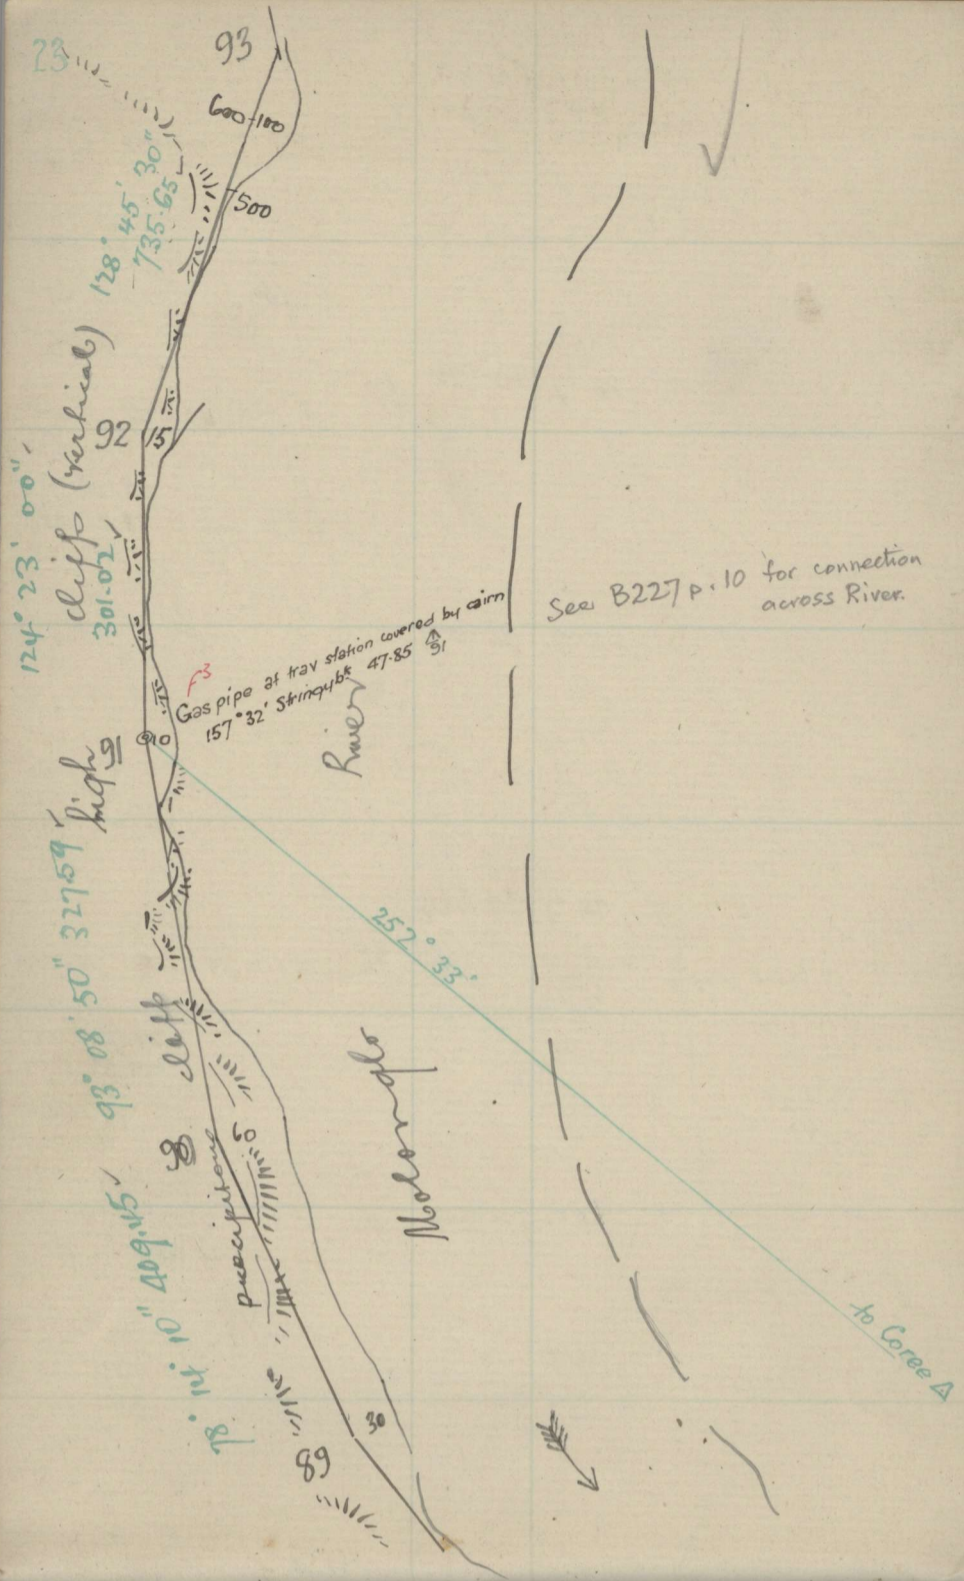 23
93
600-100
500
128° 45' 30"
735.65
92
15
124° 23' 00"
cliffs (vertical)
301.02
F3
Gas pipe at trav station covered by cairn
157° 32' Stringybk 47.85 91
See B227 p. 10 for connection
across River.
10
91
high
River
93° 08' 50" 327.59
252° 33'
cliff
90
5
precipitous
Molonglo
78° 14' 10" 409.45
to Coree
30
89